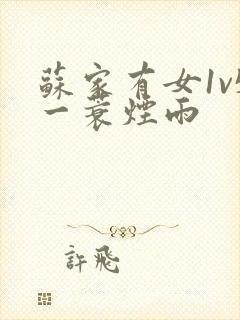 蘇家有女1v1
一蓑煙雨
許飛